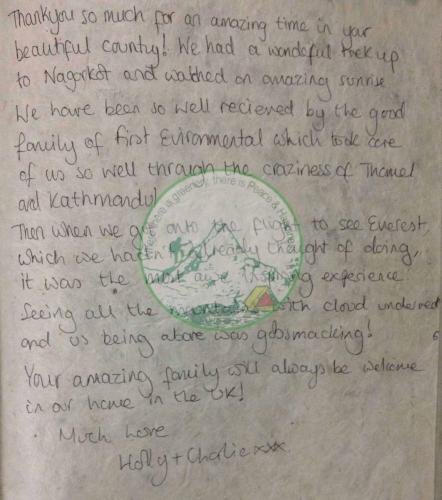 Thankyou so much for an amazing time in your
beautiful country! We had a wondeful trek up
to Nagorkot and watched an amazing sunrise
We have been so well recieved by the good
family of first Evironmental which took care
of us so well through the craziness of Thamel
and Kathmandu!
Then when we got onto the flight to see Everest,
which we hadn't already thought of doing,
it was the most awe inspiring experience
Seeing all the mountains with cloud underneath
and us being above was gobsmacking!
Your amazing family will always be welcome
in our home in the UK!
Much Love
Holly + Charlie xxx
Where there is greenery, there is Peace & Happiness